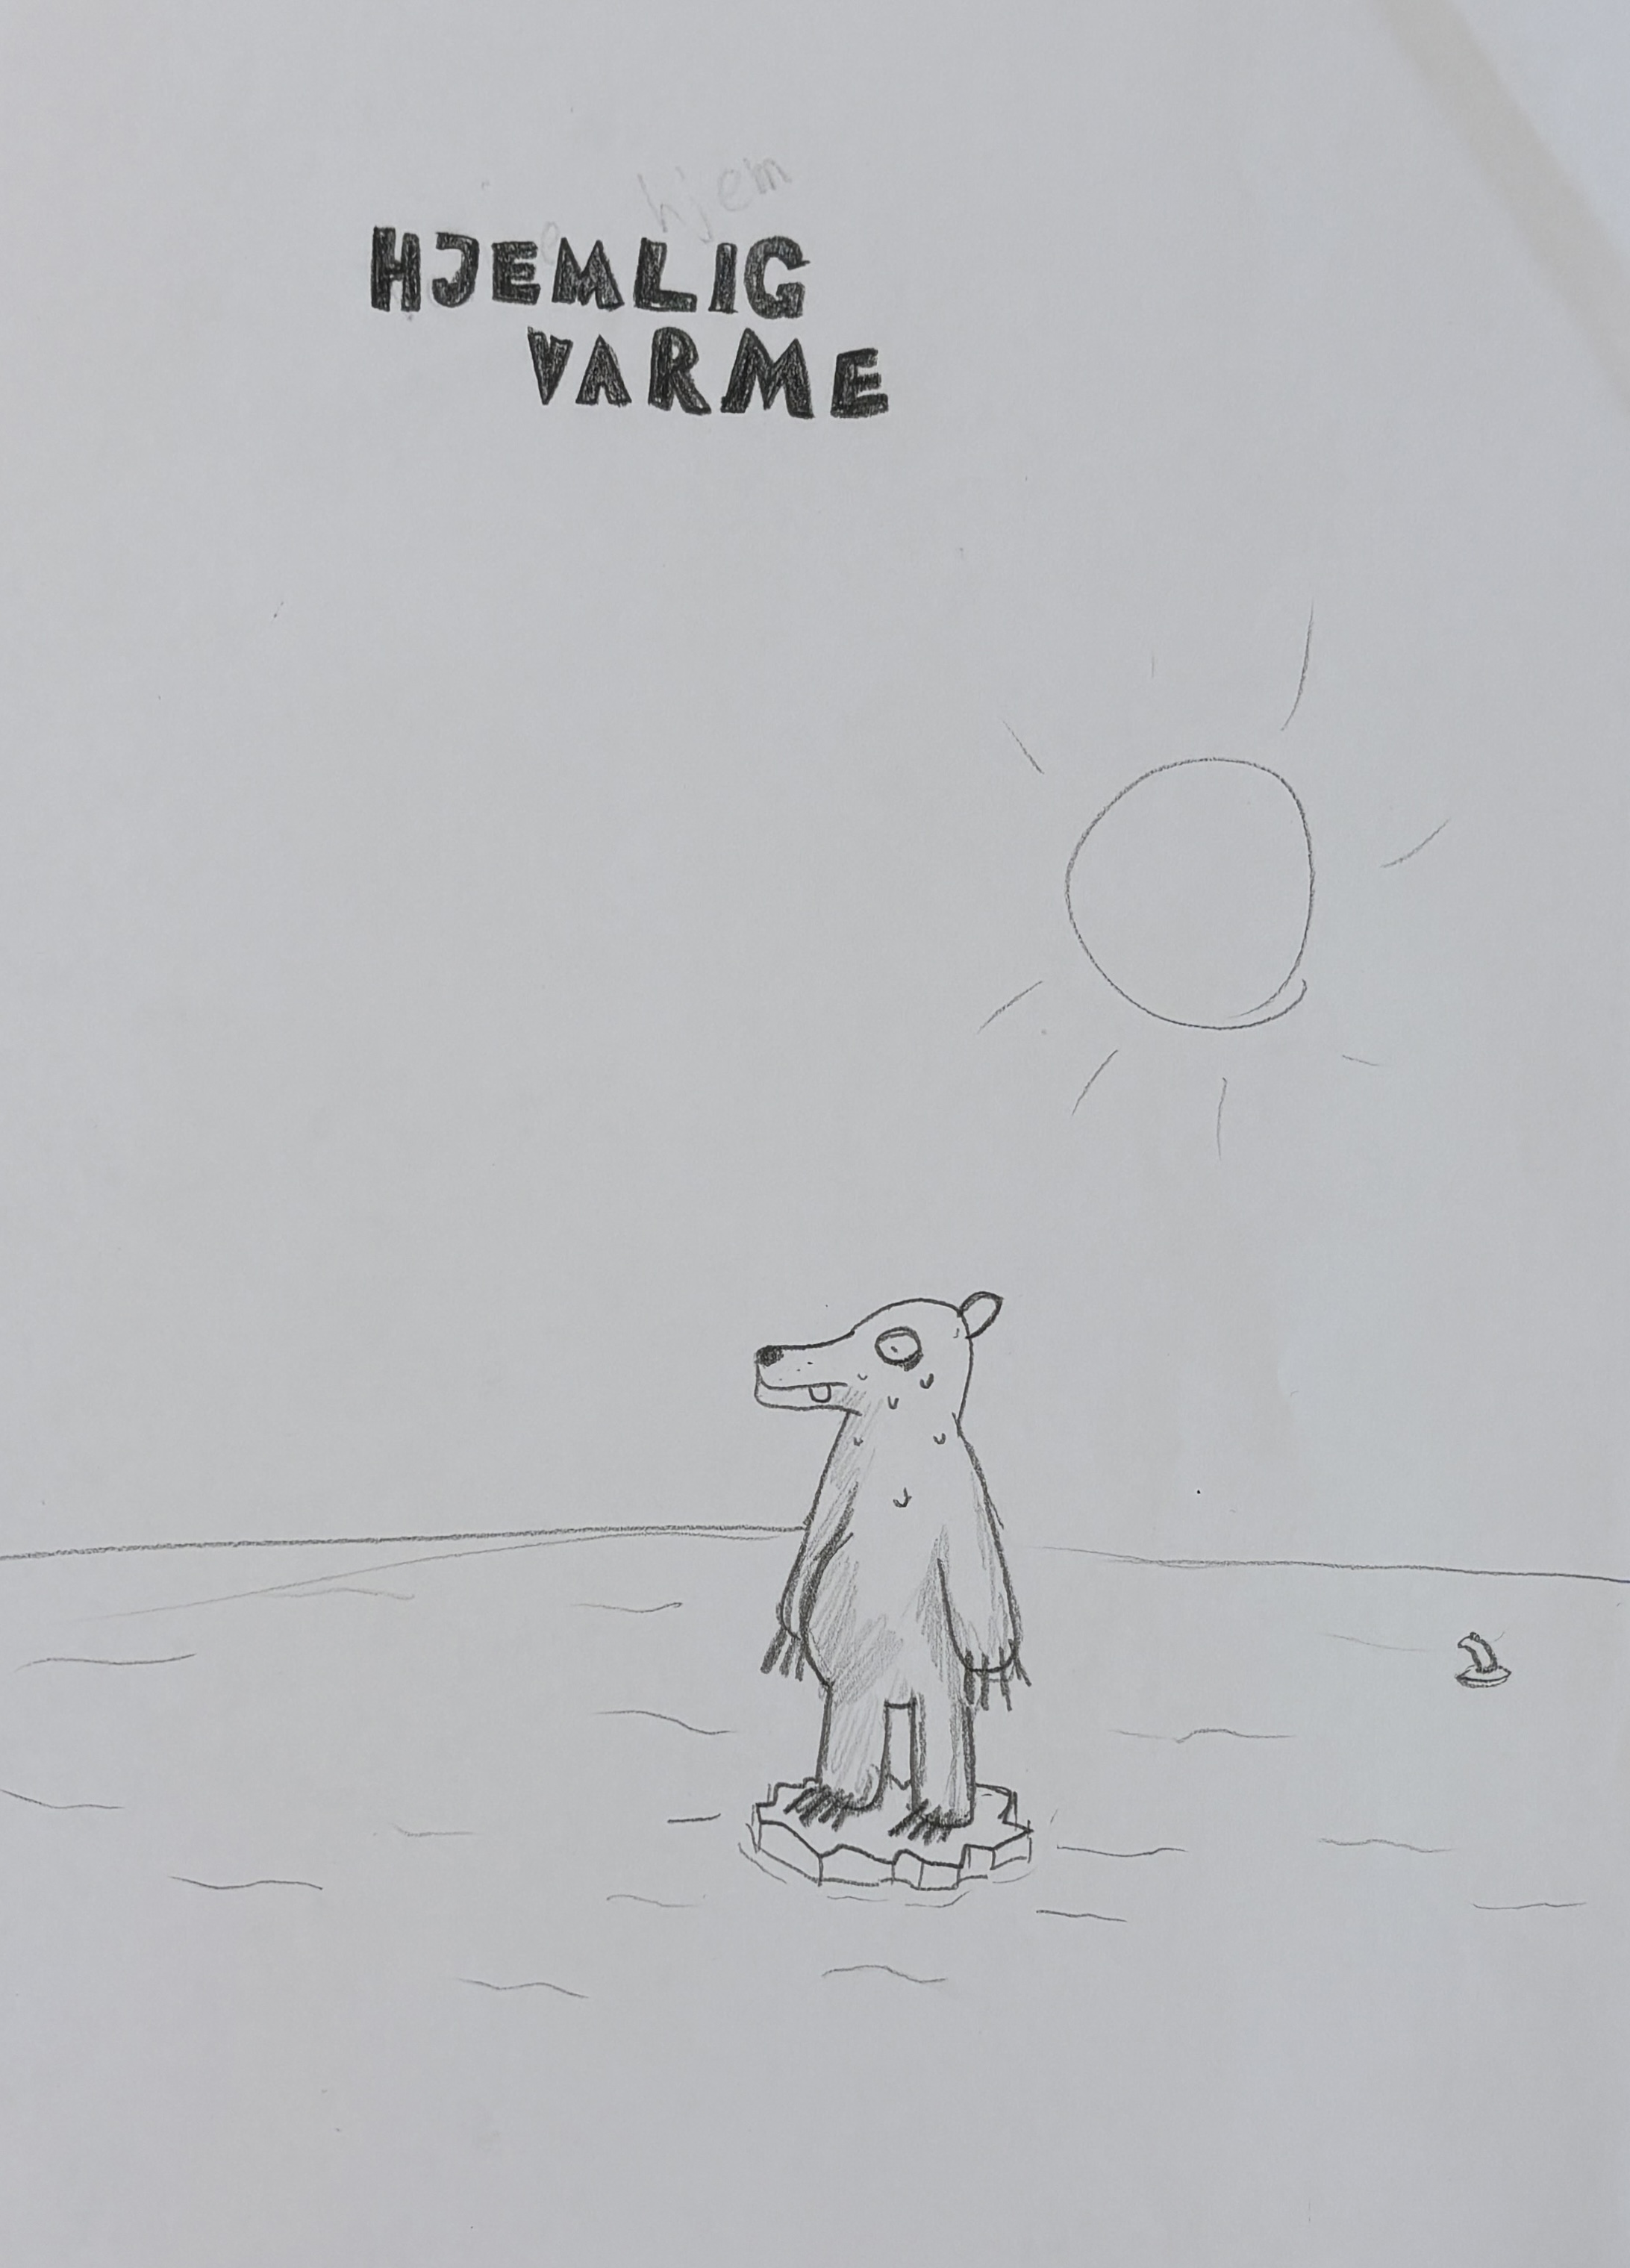 hjem
HJEMLIG
VARME